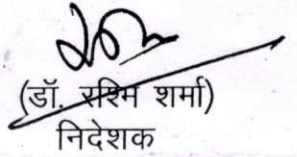 (डॉ. रश्मि शर्मा)
निदेशक